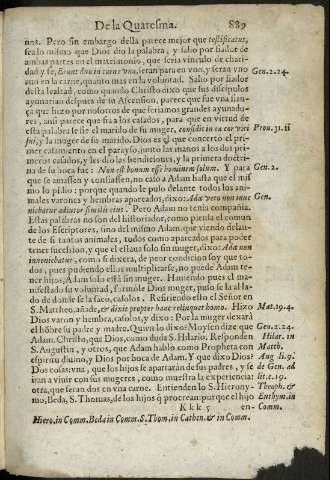 De la Quaresma. 889
nos. Pero sin embargo desta parece mejor que testificatus,
sea lo mismo que Dios dio la palabra, y salio por fiador de
ambas partes en el matrimonio, que seria vinculo de chari-
dad y fe, Erunt duo in carne vna, seran para en vno, y seran vno Gen.2.24.
aun en la carne, quanto mas en la voluntad. Salio por fiador
desta lealtad, como quando Christo dixo que sus discipulos
ayunarian despues de su Ascension, parece que fue vna fian-
ça que hizo por nosotros de que seriamos grandes ayunado-
res, ansi parece que fia a los casados, para que en virtud de
esta palabra se fie el marido de su muger, confidit in ea cor viri Prou.31.11
sui, y la muger de su marido. Dios es el que concerto el pri-
mer casamiento en el parayso, junto las manos a los dos pri-
meros casados, y les dio las bendiciones, y la primera doctri-
na de su boca fue: Non est bonum esse hominem solum. Y para Gen.2.
que se amassen y confiassen, no caso a Adam hasta que el mis
mo la pidio: porque quando le puso delante todos los ani-
males varones y hembras apareados, dixo: Ada vero non inue Gen.
niebatur adiutor similis eius. Pero Adam no tenia compañia.
Estas palabras no son del historiador, como piensa el comun
de los Escriptores, sino del mismo Adam, que viendo delan-
te de si tantos animales, todos como apareados para poder
tener sucession, y que el estaua solo sin muger, dixo: Ada non
inueniebatur, como si dixera, de peor condicion soy que to-
dos, pues pudiendo ellos multiplicarse, no puede Adam te-
ner hijos, Adam solo está sin muger. Hauiendo pues el ma-
nifestado su voluntad, formole Dios muger, puso se la al la-
do de donde se la saco, casolos. Refiriendo esto el Señor en
S. Mattheo, añade, & dixit: propter hoc relinquet homo. Hizo Mat.19.4.
Dios varon y hembra, casolos, y dixo: Por la muger dexará
el hõbre su padre y madre. Quien lo dixo? Moysen dize que Gen.2.24.
Adam. Christo, que Dios, como duda S. Hilario. Responden Hilar. in
S. Augustin, y otros, que Adam hablo como Propheta con Matth.
espiritu diuino, y Dios por boca de Adam. Y que dixo Dios? Aug. li.9.
Dos cosas: vna, que los hijos se apartarán de sus padres, y se de Gen. ad
iran a viuir con sus mugeres, como muestra la experiencia: lit.c.19.
otra, que seran dos en vna carne. Entienden lo S. Hierony- Theoph. &
mo, Beda, S. Thomas, de los hijos q̃ procrean: porque el hijo Euthym.in
Kkk 5 en- Comm.
Hiero.in Comm. Beda in Comm. S. Thom. in Cathen. & in Comm.